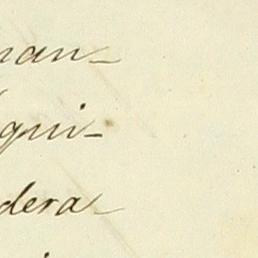 nan-
qui-
dera-